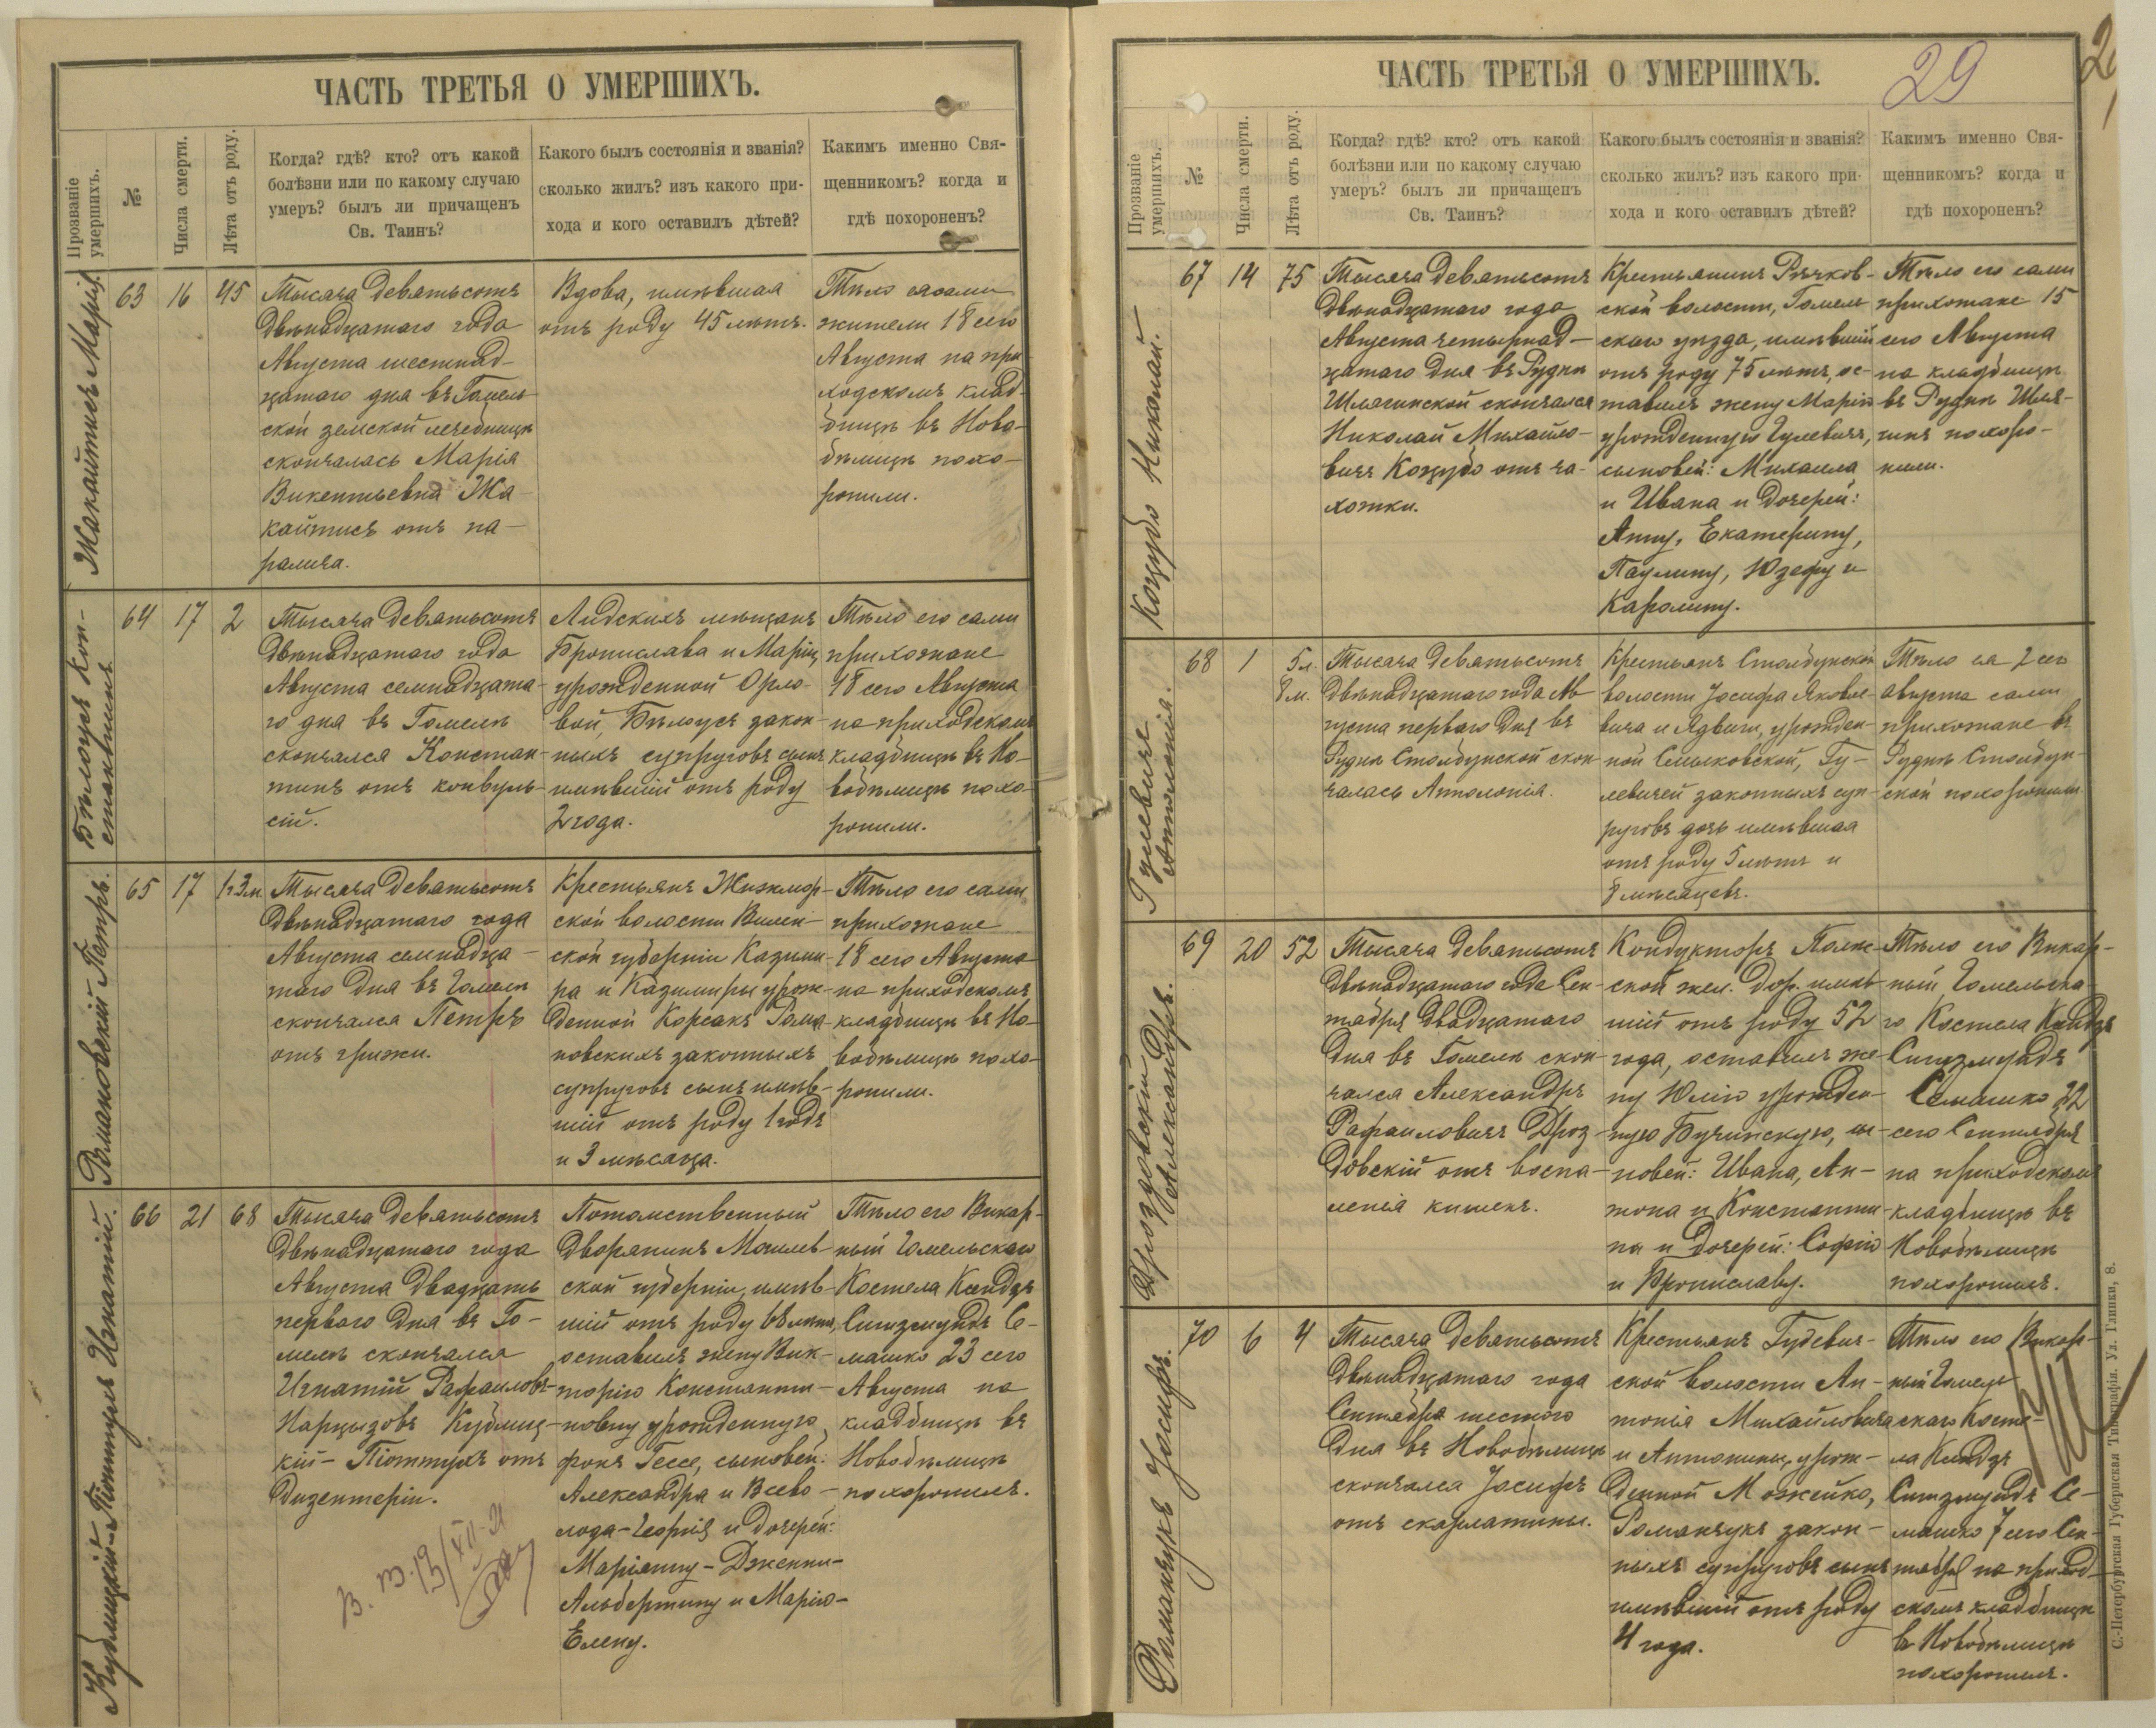 ЧАСТЬ ТРЕТЬЯ О УМЕРШИХЪ.
Прозваніе умершихъ.
№
Числа смерти.
Лѣта отъ роду.
Когда? гдѣ? кто? отъ какой
болѣзни или по какому случаю
умеръ? былъ ли причащенъ
Св. Таинъ?
Какого былъ состоянія и званія?
сколько жилъ? изъ какого при-
хода и кого оставилъ дѣтей?
Какимъ именно Свя-
щенникомъ? когда и
гдѣ похороненъ?
Жакайтисъ Марія.
63
16
45
Тысяча девятьсотъ
двѣнадцатаго года
Августа шестнад-
цатаго дня въ Гомель
ской земской лечебницѣ
скончалась Марія
Викентьевна Жа
кайтисъ отъ па-
ралича.
Вдова, имѣвшая
отъ роду 45 лѣтъ.
Тѣло ея сами
жители 18 сего
Августа на при
ходскомъ клад
бищѣ въ Ново-
бѣлицѣ похо-
ронили.
Бѣлоусъ Кон-
стантинъ
64
17
2
Тысяча девятьсотъ
двѣнадцатаго года
Августа семнадцата-
го дня въ Гомелѣ
скончался Констан-
тинъ отъ конвуль-
сій.
Лидскихъ мѣщанъ
Бронислава и Маріи,
урожденной Орло-
вой, Бѣлоусъ закон-
ныхъ супруговъ сынъ
имѣвшій отъ роду
2 года.
Тѣло его сами
прихожане
18 сего Августа
на приходскомъ
кладбищѣ въ Но-
вобѣлицѣ похо-
ронили.
Романовскій Петръ.
65
17
1г3м.
Тысяча девятьсотъ
двѣнадцатаго года
Августа семнадца-
таго дня въ Гомелѣ
скончался Петръ
отъ грыжи.
Крестьянъ Жизмор-
ской волости Вилен-
ской губерніи Казими-
ра и Казимиры урож-
денной Корсакъ Рома-
новскихъ законныхъ
супруговъ сынъ имѣв-
шій отъ роду 1 годъ
и 3 мѣсяца.
Тѣло его сами
прихожане
18 сего Августа
на приходскомъ
кладбищѣ въ Но-
вобѣлицѣ похо-
ронили.
Кублицкій-Піоттухъ Игнатій.
66
21
68
Тысяча девятьсотъ
двѣнадцатаго года
Августа двадцать
перваго дня въ Го-
мелѣ скончался
Игнатій Рафаиловъ-
Нарцызовъ Кублиц-
кій-Піоттухъ отъ
дизентеріи.
Потомственный
дворянинъ Могилев
ской губерніи, имѣв-
шій отъ роду 68 лѣтъ,
оставилъ жену Вик-
торію Константи-
новну урожденную
фонъ Гессе, сыновей:
Александра и Всево-
лода-Георгія и дочерей:
Маріанну-Дженни-
Альбертину и Марію-
Елену.
Тѣло его Викар-
ный Гомельскаго
Костела Ксендзъ
Сигизмундъ Се-
машко 23 сего
Августа на
кладбищѣ въ
Новобѣлицѣ
похоронилъ.
ЧАСТЬ ТРЕТЬЯ О УМЕРШИХЪ.
29
Прозваніе умершихъ.
№
Числа смерти.
Лѣта отъ роду.
Когда? гдѣ? кто? отъ какой
болѣзни или по какому случаю
умеръ? былъ ли причащенъ
Св. Таинъ?
Какого былъ состоянія и званія?
сколько жилъ? изъ какого при-
хода и кого оставилъ дѣтей?
Какимъ именно Свя-
щенникомъ? когда и
гдѣ похороненъ?
Коцубо Николай.
67
14
75
Тысяча девятьсотъ
двѣнадцатаго года
Августа четырнад-
цатаго дня въ Рудни
Шлягинской скончался
Николай Михайло-
вичъ Коцубо отъ ча-
хотки.
Крестьянинъ Рѣчков-
ской волости, Гомель
скаго уѣзда, имѣвшій
отъ роду 75 лѣтъ, ос-
тавилъ жену Марію
урожденную Гулевичъ,
сыновей: Михаила
и Ивана и дочерей:
Анну, Екатерину,
Паулину, Юзефу и
Каролину.
Тѣло его сами
прихожане 15
сего Августа
на кладбищѣ
въ Руднѣ Шля-
гинѣ похоро-
нили.
Гулевичъ
Апполонія.
68
1
5л.
8м.
Тысяча девятьсотъ
двѣнадцатаго года Ав
густа перваго дня въ
Руднѣ Столбунской скон
чалась Апполонія.
Крестьянъ Столбунской
волости Іосифа Яковле-
вича и Ядвиги, урожден-
ной Смыковской, Гу-
левичей законныхъ суп-
руговъ дочь имѣвшая
отъ роду 5 лѣтъ и
8 мѣсяцевъ.
Тѣло ея 2 сего
августа сами
прихожане въ
Руднѣ Столбун-
ской похоронили
Дроздовскій
Александръ.
69
20
52
Тысяча девятьсотъ
двѣнадцатаго года Сен-
тября двадцатаго
дня въ Гомелѣ скон-
чался Александръ
Рафаиловичъ Дроз-
довскій отъ воспа-
ленія кишекъ.
Кондукторъ Полѣс-
ской жел. дор. имѣв
шій отъ роду 52
года, оставилъ же-
ну Юлію урожден-
ную Бучинскую, сы-
новей: Ивана, Ан-
тона и Константи-
на и дочерей: Софію
и Брониславу.
Тѣло его Викар-
ный Гомельска-
го Костела Ксендзъ
Сигизмундъ
Семашко 22
сего Сентября
на приходскомъ
кладбищѣ въ
Новобѣлицѣ
похоронилъ.
Романчукъ Іосифъ.
70
6
4
Тысяча девятьсотъ
двѣнадцатаго года
Сентября шестого
дня въ Новобѣлицѣ
скончался Іосифъ
отъ скарлатины.
Крестьянъ Гудевич-
ской волости Ан-
тонія Михайловича
и Антонины, урож-
денной Можейко,
Романчукъ закон-
ныхъ супруговъ сынъ
имѣвшій отъ роду
4 года.
Тѣло его Викар-
ный Гомель
скаго Косте-
ла Ксендзъ
Сигизмундъ Се-
машко 7 сего Сен-
тября на приход-
скомъ кладбищѣ
въ Новобѣлицѣ
похоронилъ.
С.-Петербургская Губернская Типографія. Ул. Глинки, 8.